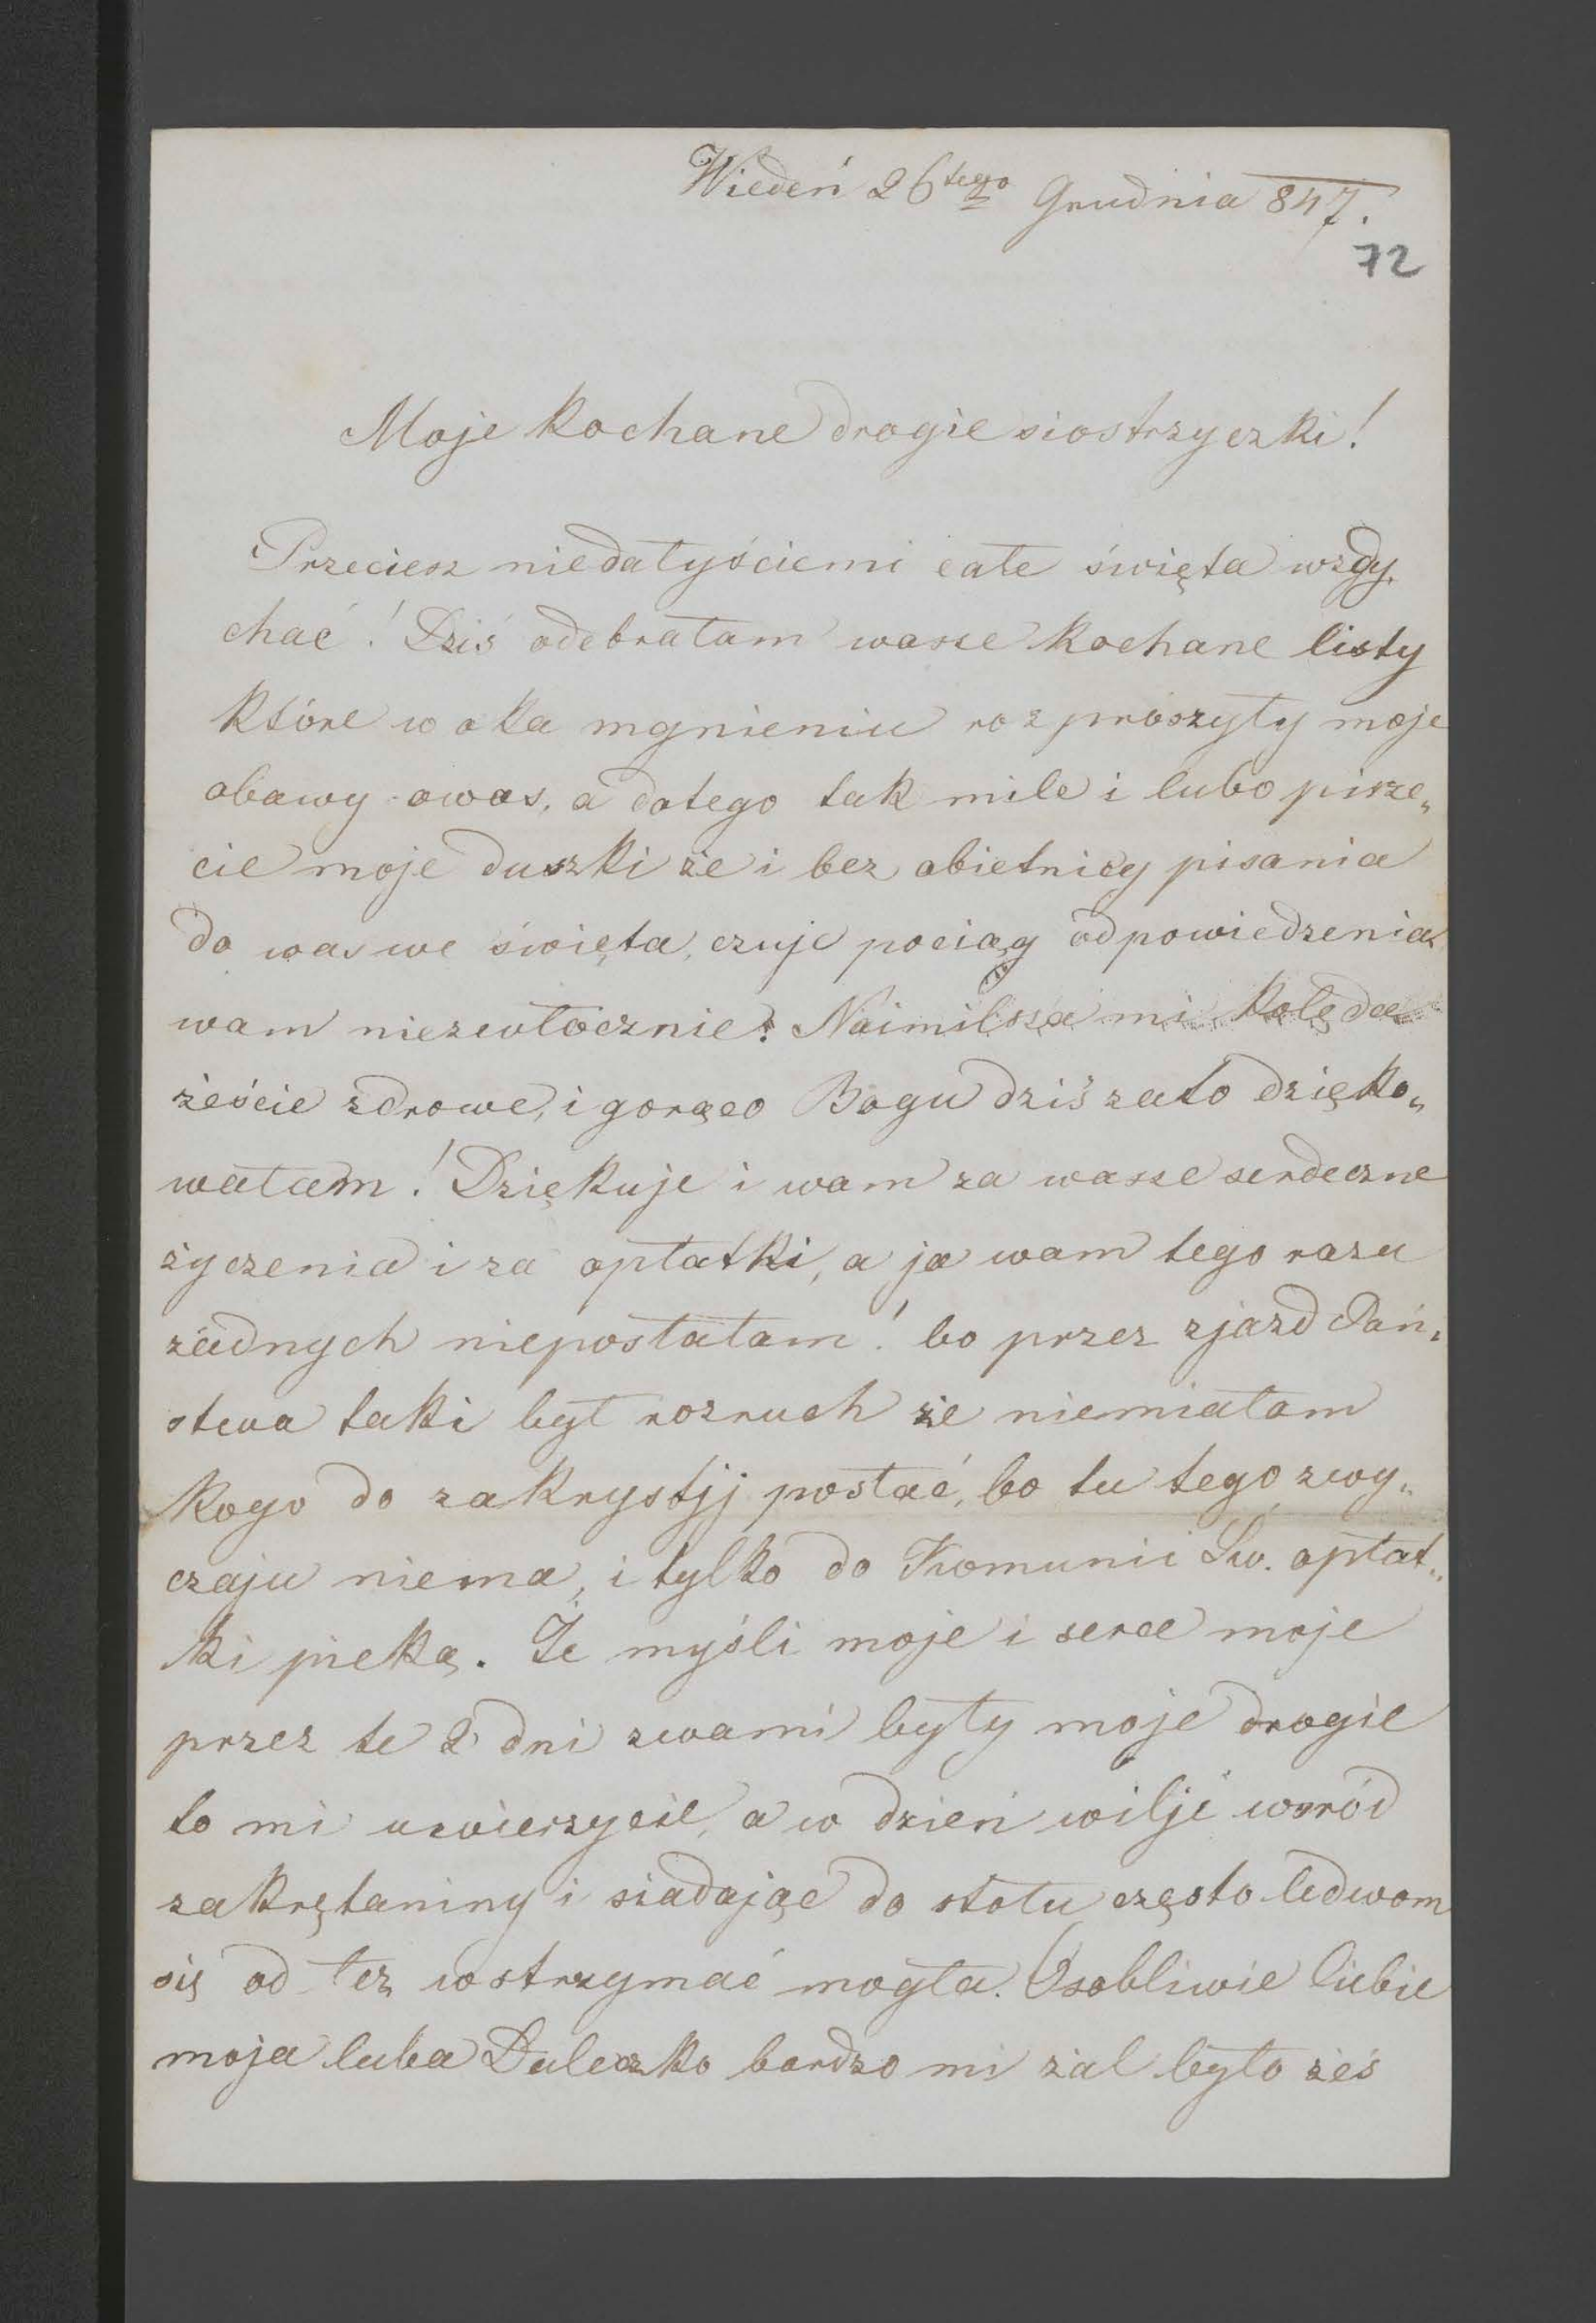 Wiedeń 26tego Grudnia 847.
72
Moje kochane drogie siostrzyczki!
Przeciesz niedałyściemi całe święta wzdy„
chać! Dziś odebrałam wasze kochane listy
które w oka mgnieniu rozproszyły moje
obawy owas, a dotego tak mile i lubo pisze„
cie moje duszki że i bez obietnicy pisania
do was we święta, czuje pociąg odpowiedzenia
wam niezwłocznie! Naimilsza mi kolęda
żeście zdrowe, i gorąco Bogu dziś zato dzięko„
wałam! Dziękuje i wam za wasze serdeczne
życzenia i za opłatki, a ja wam tego razu
żadnych nieposłałam! bo przez zjazd Pań„
stwa taki był rozruch że niemiałam
kogo do zakrystjj posłać, bo tu tego zwy„
czaju niema, i tylko do Komunii Św. opłat„
ki pieką. Że myśli moje i serce moje
przez te 2 dni zwami były moje drogie
to mi uwierzycie, a w dzień wilji wsród
zakrętaniny i siadając do stołu często ledwom
się od łez wstrzymać mogła. Osobliwie Ciebie
moja luba Duleczko bardzo mi żal było żeś